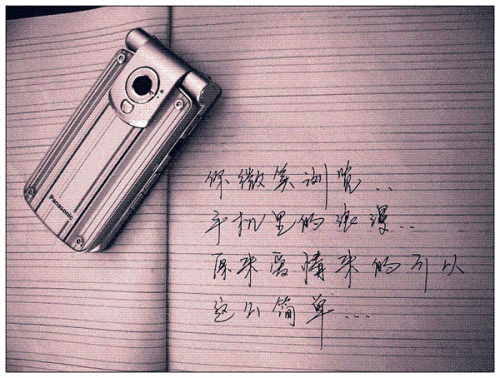 Panasonic
你微笑浏览...
手机里的浪漫...
原来爱情来的可以
这么简单...